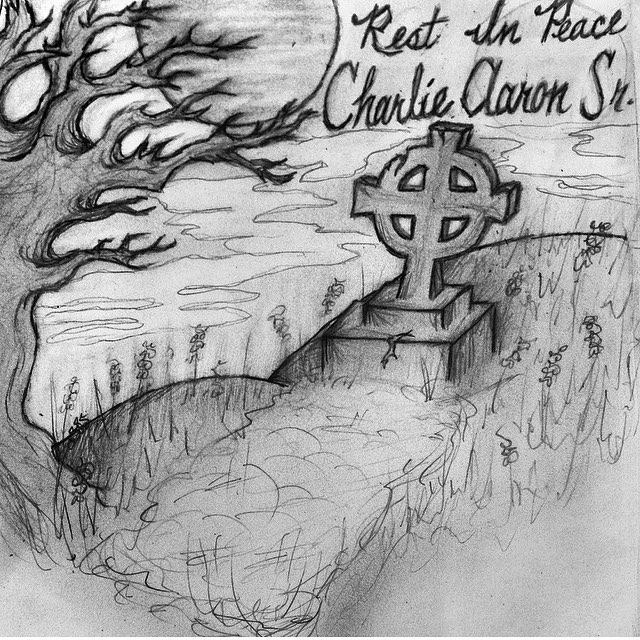 Rest In Peace
Charlie Aaron Sr.